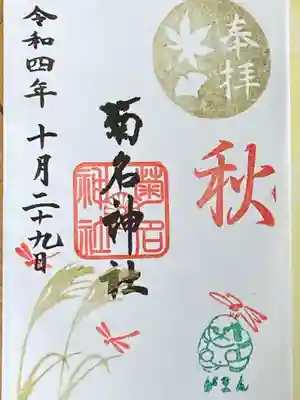 奉拝
秋
菊名神社
菊名
神社
令和四年 十月二十九日
がまんさま